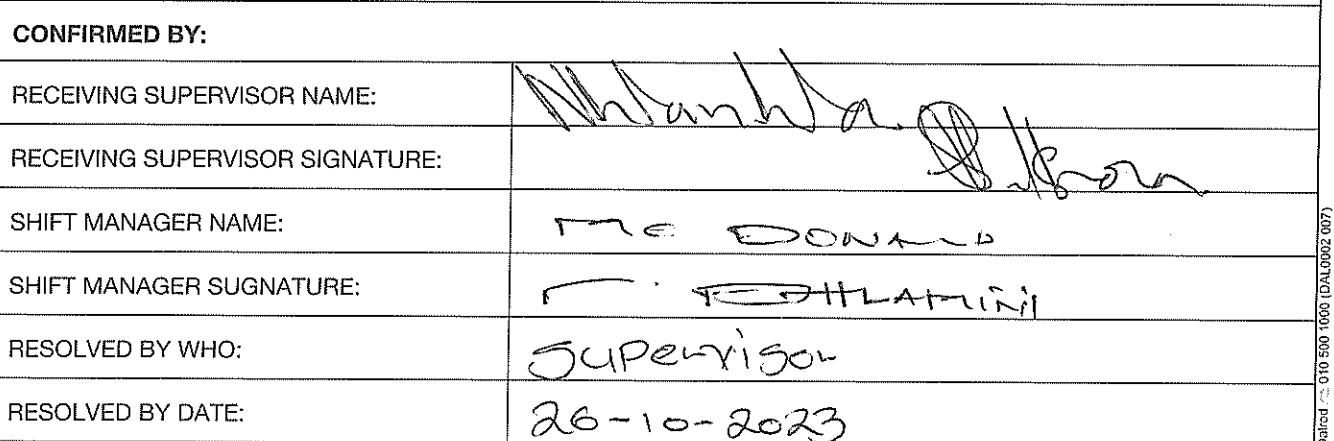 CONFIRMED BY:
RECEIVING SUPERVISOR NAME: Nhlanhla.
RECEIVING SUPERVISOR SIGNATURE:
SHIFT MANAGER NAME: MC DONALD
SHIFT MANAGER SUGNATURE: DHLAMINI
RESOLVED BY WHO: Supervisor
RESOLVED BY DATE: 26-10-2023
010 500 1000 (DAL0002 007)